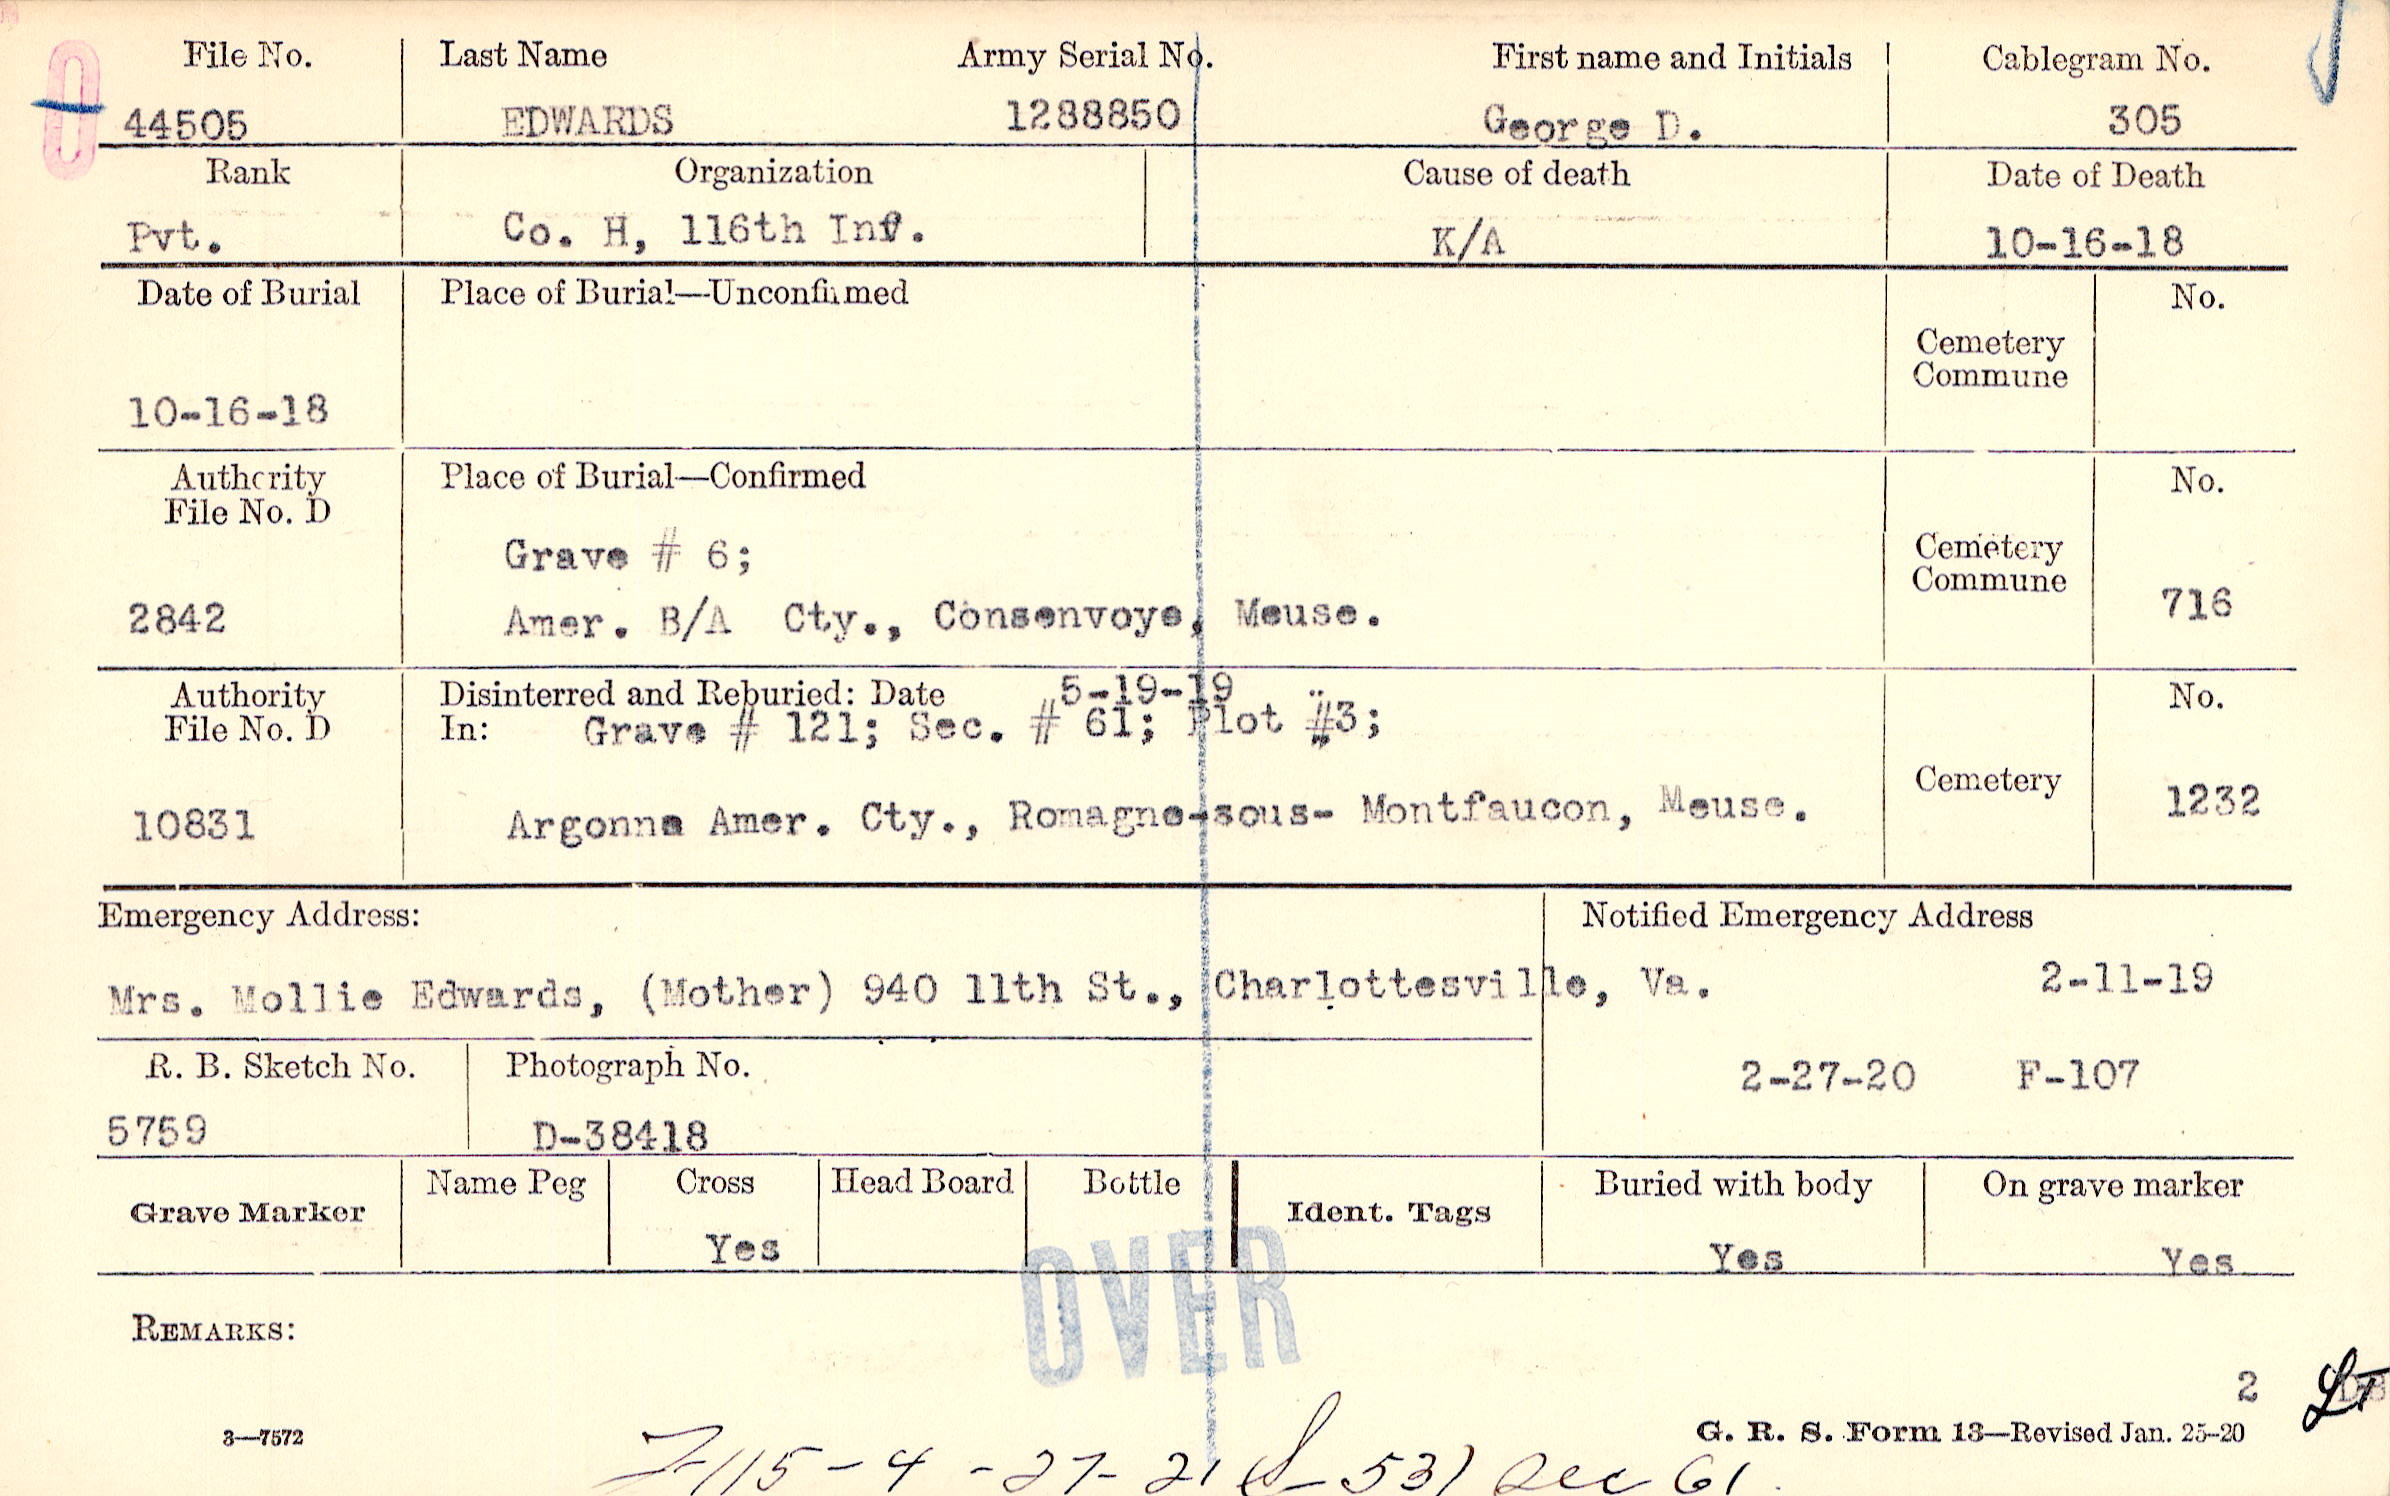 File No. Last Name Army Serial No. First name and Initials Cablegram No.
44505 EDWARDS 1288850 George D. 305
Rank Organization Cause of death Date of Death
Pvt. Co. H, 116th Inf. K/A 10-16-18
Date of Burial Place of Burial—Unconfirmed No.
Cemetery
Commune
10-16-18
Authority Place of Burial—Confirmed No.
File No. D
Grave # 6;
Cemetery
Commune
2842 Amer. B/A Cty., Consenvoye, Meuse. 716
Authority Disinterred and Reburied: Date 5-19-19 No.
File No. D In: Grave # 121; Sec. # 61; Plot #3;
Cemetery
10831 Argonne Amer. Cty., Romagne-sous- Montfaucon, Meuse. 1232
Emergency Address: Notified Emergency Address
Mrs. Mollie Edwards, (Mother) 940 11th St., Charlottesville, Va. 2-11-19
R. B. Sketch No. Photograph No. 2-27-20 F-107
5759 D-38418
Grave Marker Name Peg Cross Head Board Bottle Ident. Tags Buried with body On grave marker
Yes Yes Yes
OVER
REMARKS:
2
3—7572 G. R. S. Form 13—Revised Jan. 25-20
115-4-27-21 531 Sec 61